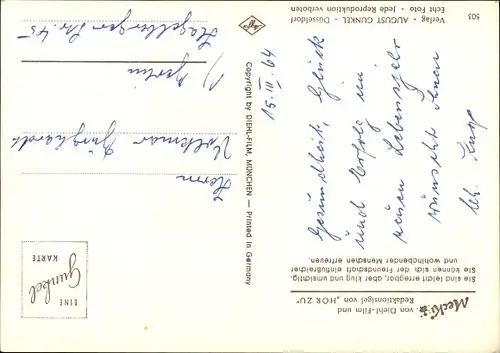 Mecki von Diehl-Film und
Redaktionsigel von „HÖR ZU"
Sie sind leicht erregbar, aber klug und umsichtig.
Sie können sich der Freundschaft einflußreicher
und wohlhabender Menschen erfreuen.
15. III. 64
Gesundheit, Glück
und Erfolg im
neuen Lebensjahr
wünscht Ihnen
Copyright by DIEHL-FILM, MÜNCHEN — Printed in Germany
Agfa
Herrn
Volkmar
Berlin
Hagelberger Str. 45
EINE
Gunkel
KARTE
Verlag - AUGUST GUNKEL - Düsseldorf
Echt Foto - Jede Reproduktion verboten
503